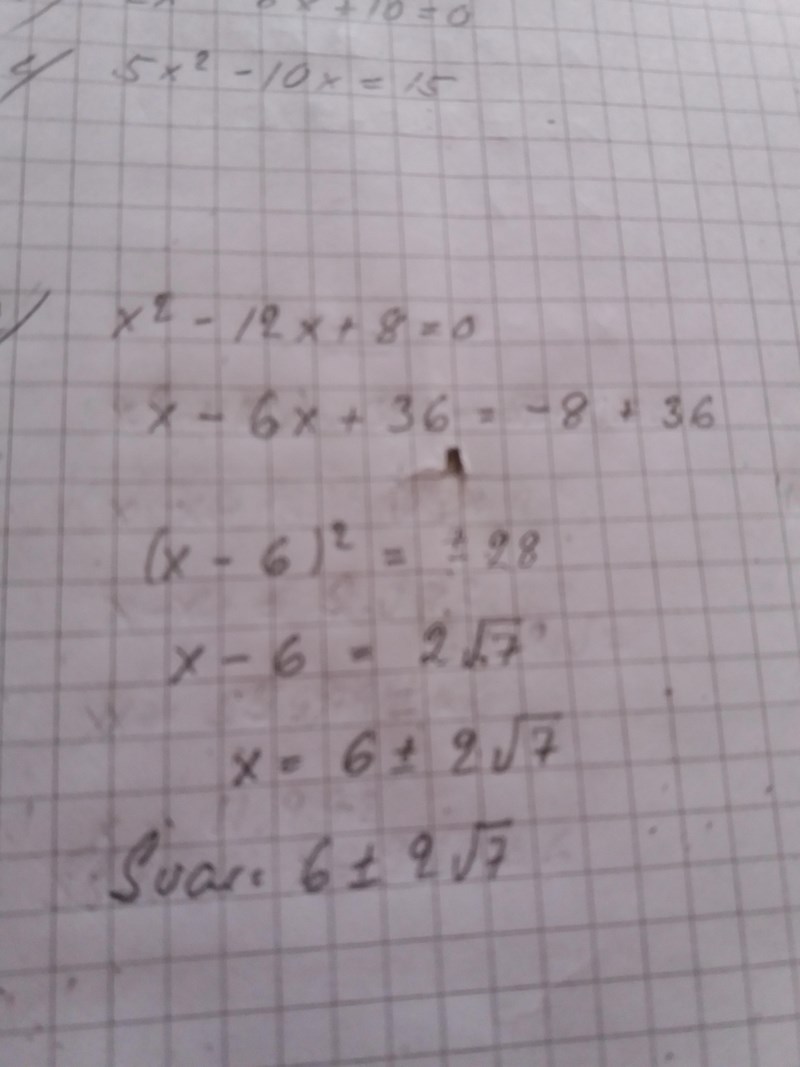 x + 10 = 0
c) 5x² - 10x = 15
x² - 12x + 8 = 0
x - 6x + 36 = -8 + 36
(x - 6)² = ± 28
x - 6 = 2√7
x = 6 ± 2√7
Svar: 6 ± 2√7